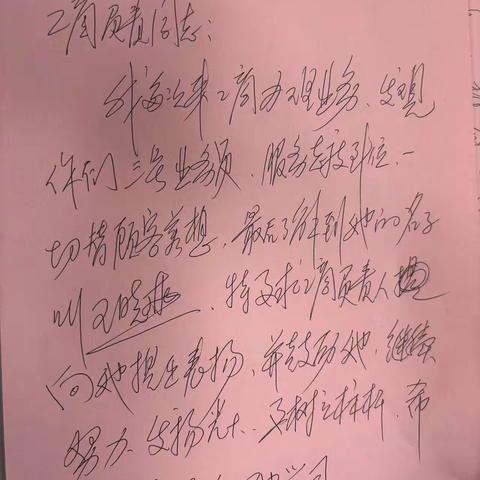 工商负责同志:
我每次来工商办理业务、发现
你们三号业务员、服务态度到位、一
切替顾客着想、最后了解到她的名字
叫王晓、特要求工商负责人
向她提出表扬、并鼓励她、继续
努力、发扬光大、树立标杆、希